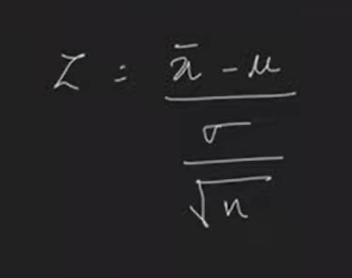 Z = x̄ - μ
σ
√n